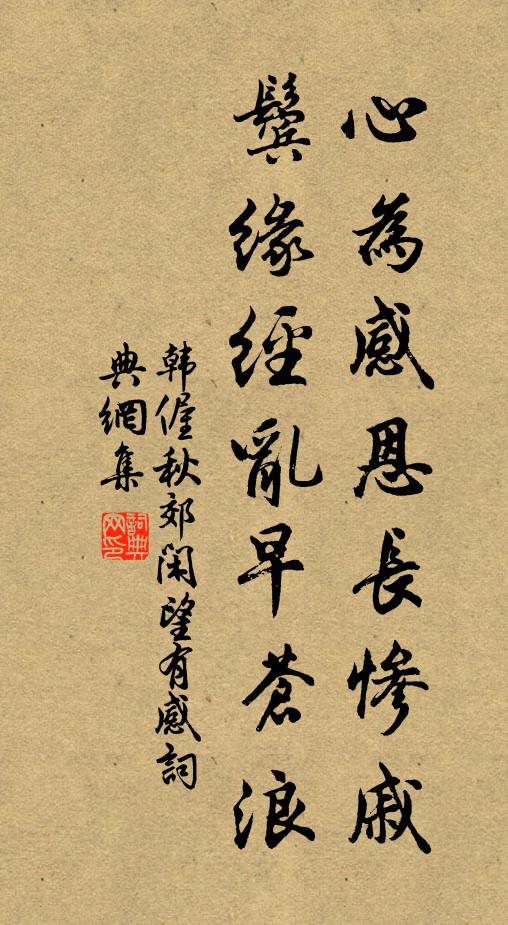 心為感恩長慘戚
鬢緣經亂早蒼浪
韓偓秋郊閑望有感詞
典網集
詞典网印